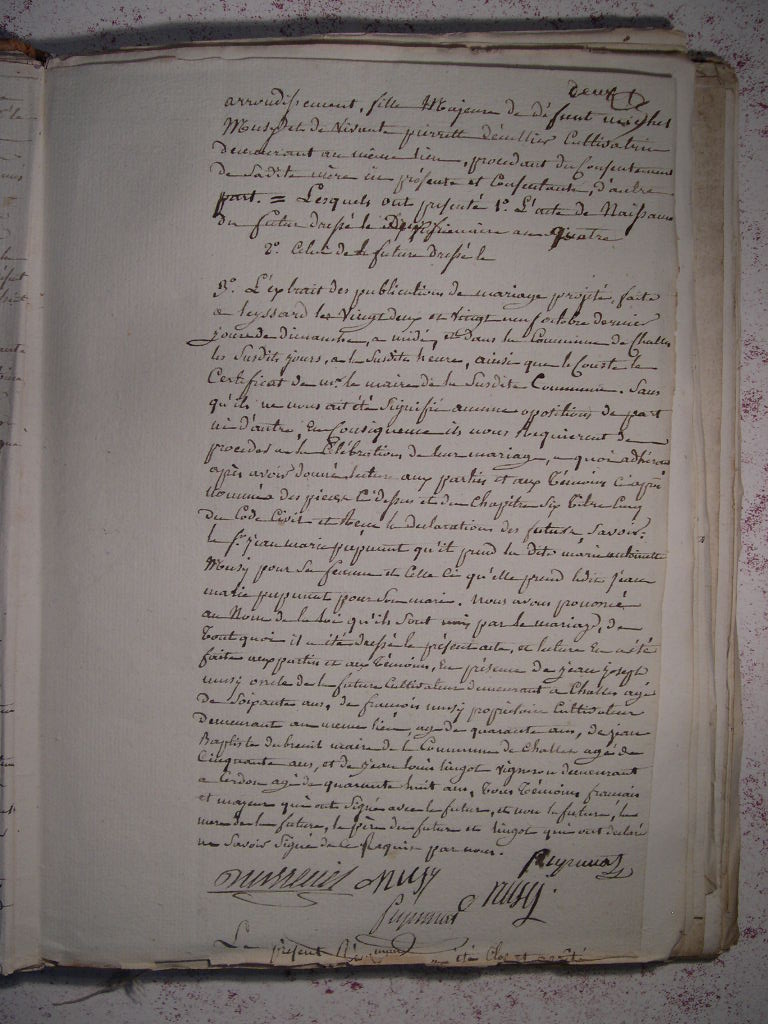 deux
arrondissement, fille Majeure de défunt michel
Musy et de vivante pierrette Cultivatrice
demeurant au même lieu, procédant du Consentement
de Sadite mère ici présente et Consentante, d'autre
part. = Lesquels ont présenté 1°. L'acte de Naissance
du futur dressé le an quatre
2°. Celui de la future dressé le
3°. L'extrait des publications de mariage projeté, faite
a leyssard les Vingt deux et Vingt neuf octobre dernier
jours de dimanche, a midi, et dans la Commune de Challes
les Susdits jours, a la Susdite heure, ainsi que le Conste le
Certificat de mr. le maire de la Susdite Commune. Sans
qu'ils ne nous ait été Signifié aucune opositions de part
ni d'autre En Conséquence ils nous Requierent de
proceder a la Célébrations de leur mariage, a quoi adhérant
après avoir donné lecture aux parties et aux Témoins Ci après
nommés des pieces Ci dessus et du Chapitre Six Titre Cinq
du Code Civil et Reçu la declarations des futurs, Savoir:
le Sr. jean marie qu'il prend la dite marie antoinette
Musy pour Sa femme et Celle Ci qu'elle prend ledit jean
marie pour Son mari. Nous avons prononcé
au Nom de la loi qu'ils Sont unis par le mariage, de
tout quoi il a été dressé le présent acte, et lecture En a été
faite aux parties et aux Témoins, En présence de jean joseph
musy oncle de la future Cultivateur demeurant a Challes agé
de Soixante ans, de françois musy propriétaire Cultivateur
Demeurant au meme lieu, agé de quarante ans, de jean
Baptiste dubreuil maire de la Commune de Challes agé de
Cinquante ans, et de jean louis lingot vigneron demeurant
a Cerdon agé de quarante huit ans, Tous Témoins français
et majeur qui ont Signé avec le futur, et non la future, la
mere de la future, le père du futur et lingot qui ont declaré
ne Savoir Signé de Ce Requis par nous.
dubreuil Musy
musy
Le présent été Clos et arrêté